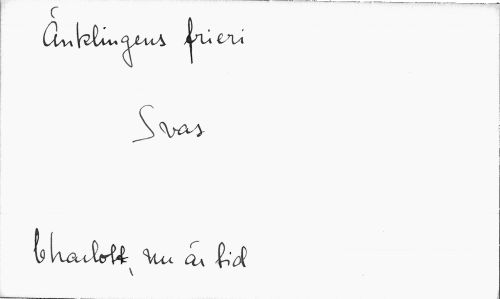 Änklingens frieri
Svas
Charlott, nu är tid